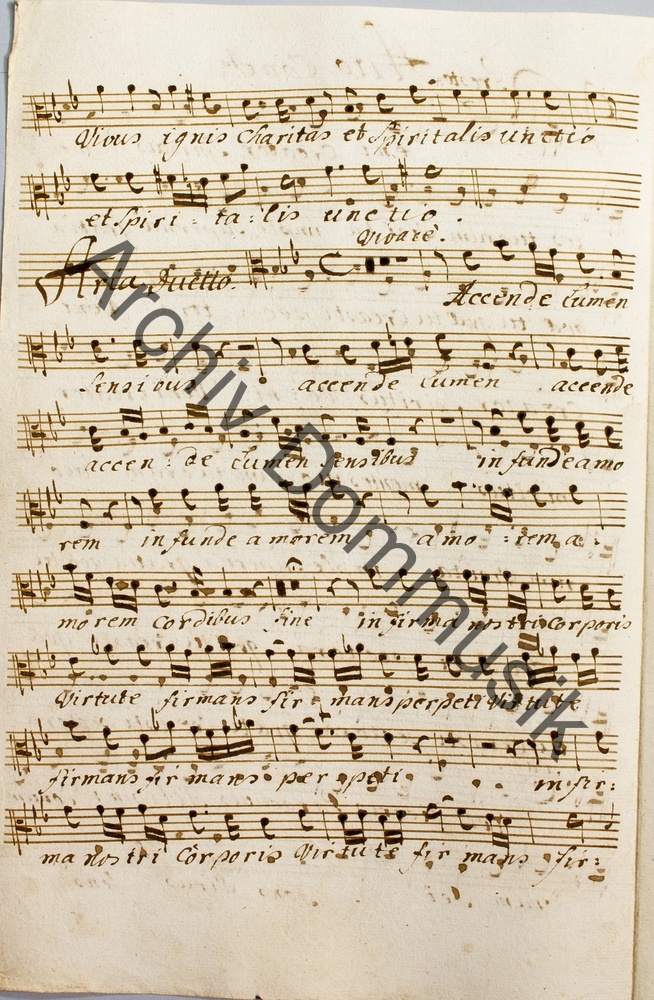 Vivus ignis Charitas et Spiritalis unctio
et Spiri - ta - lis unctio.
Vivace.
Aria Duetto.
Accende lumen
sensibus accende lumen accende
accen - de lumen sensibus infunde amo
rem infunde amorem amo - rem a -
morem Cordibus fine infirma nostri Corporis
Virtute firmans fir - mans perpeti Virtute
firmans fir mans perpeti infir:
ma nostri Corporis Virtute fir mans fir:
Archiv Dommusik